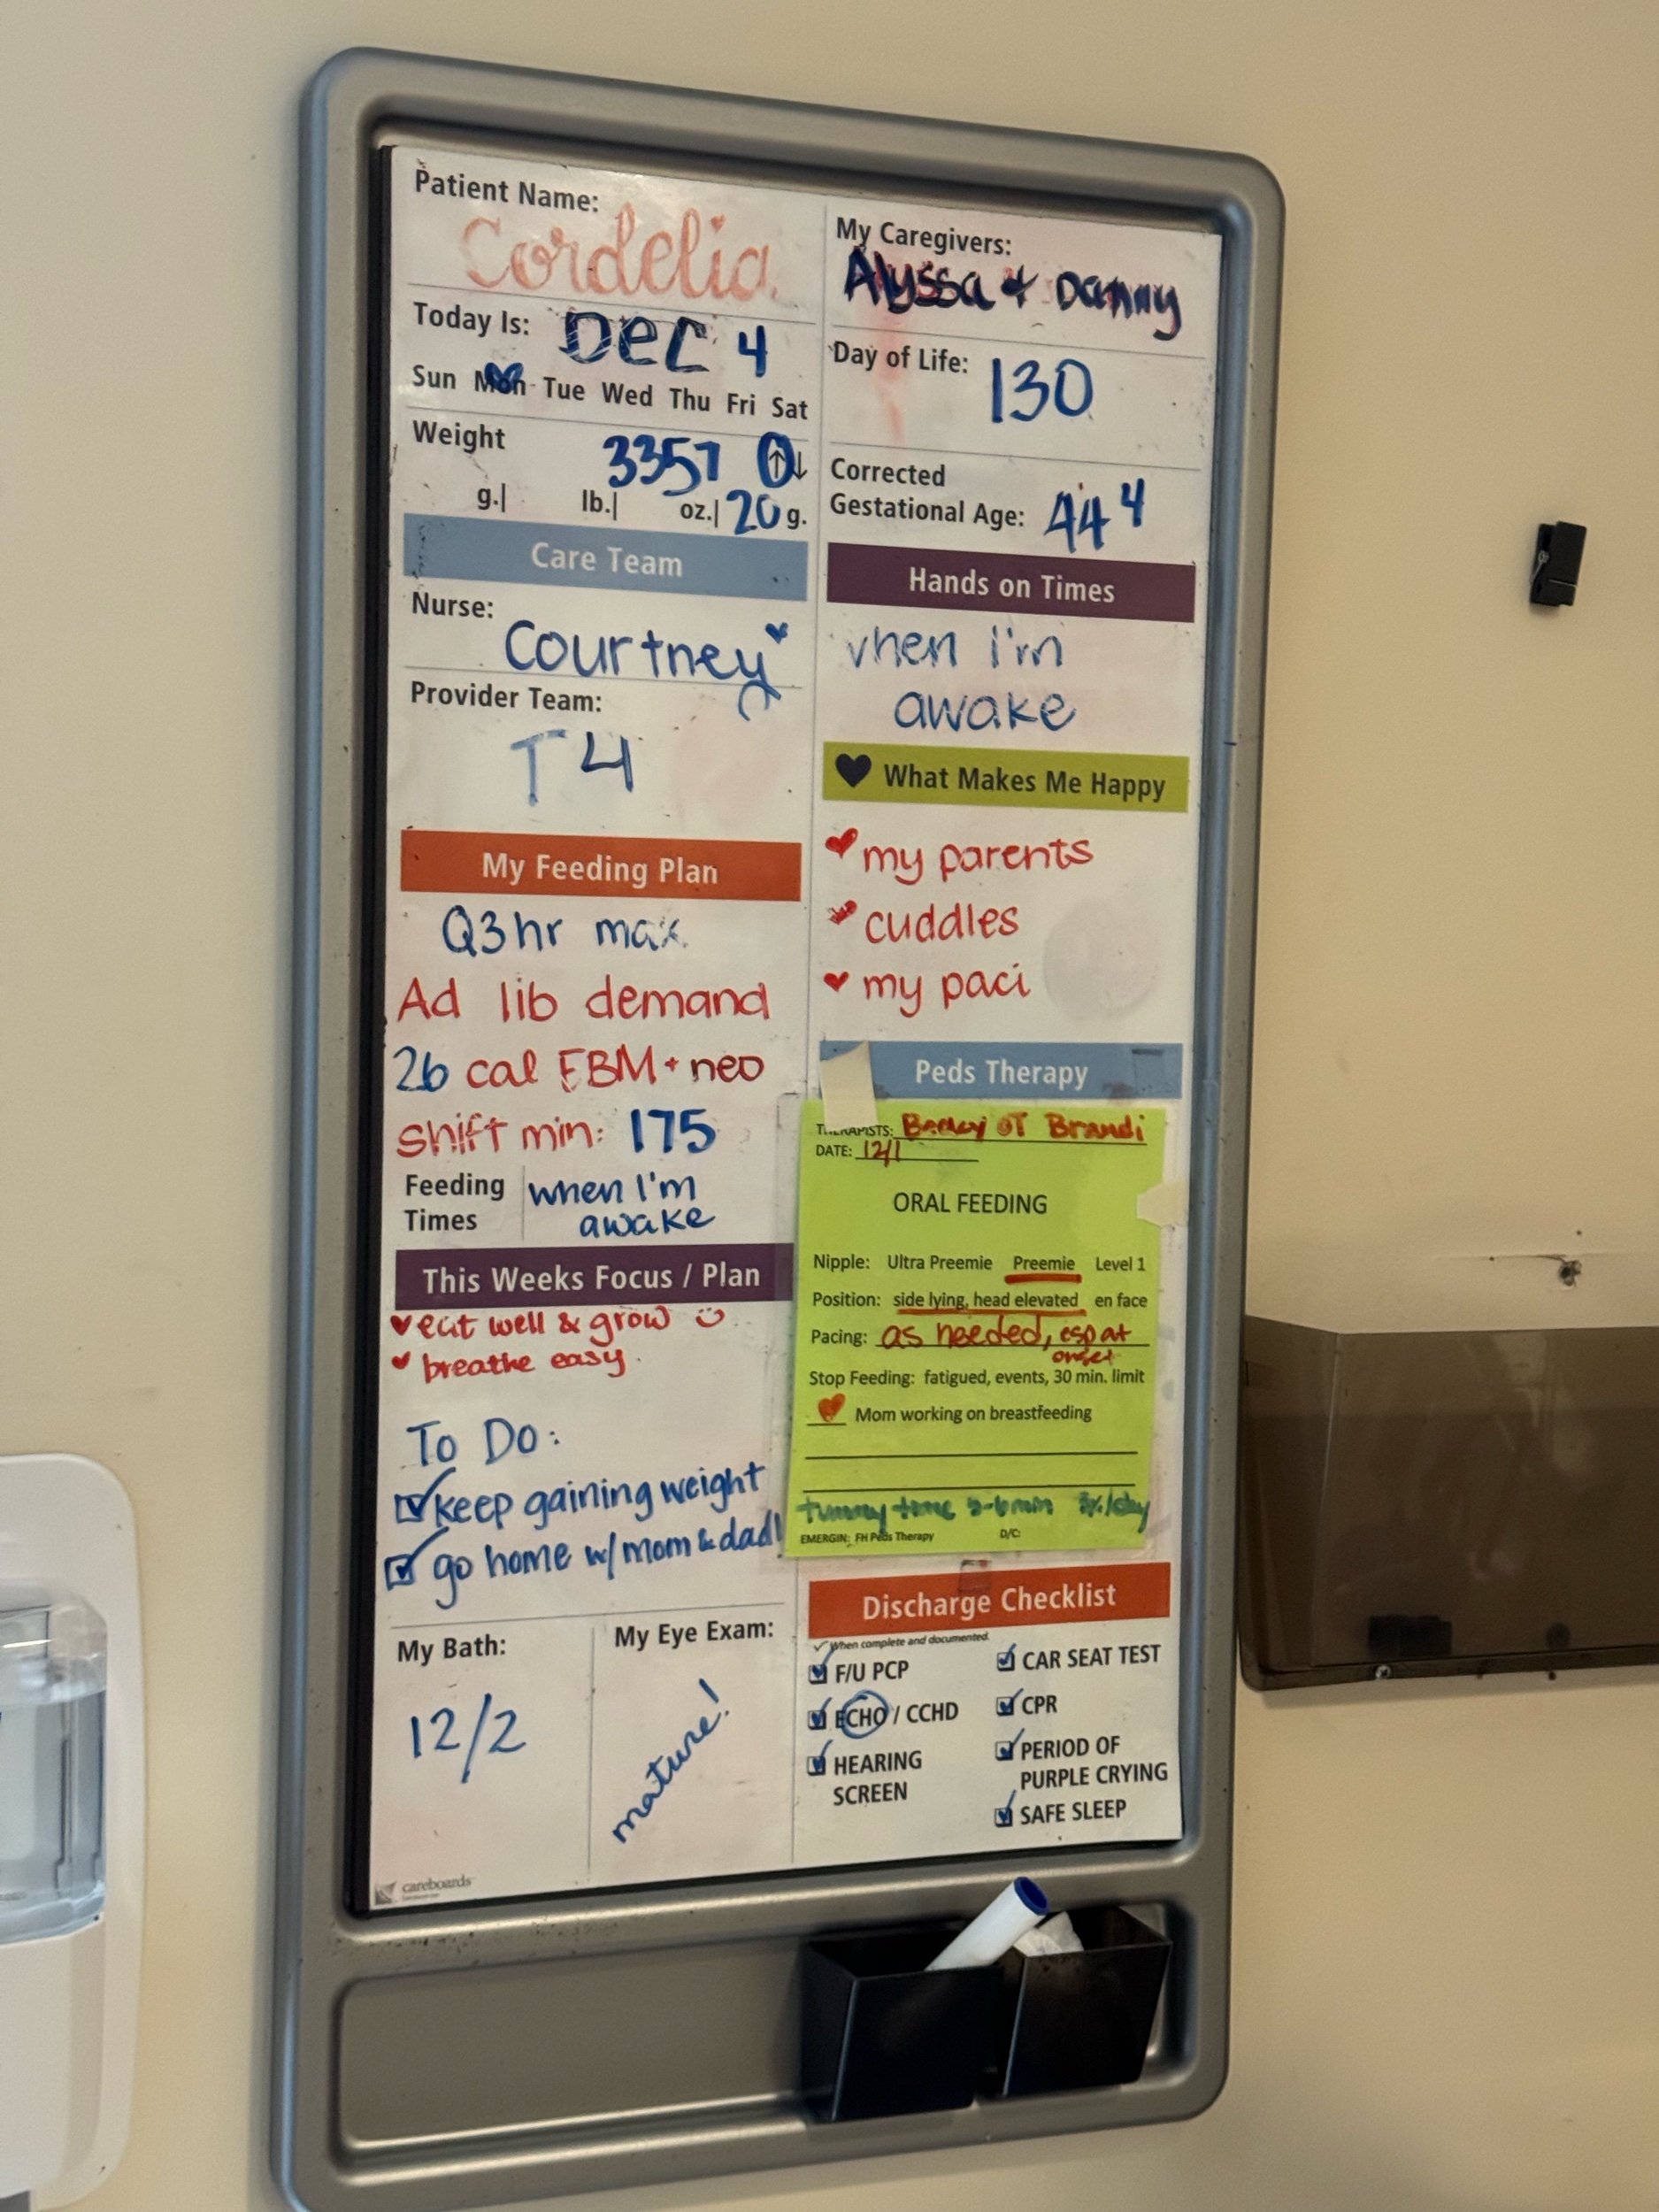 Patient Name:
Cordelia
Today Is: Dec 4
Sun Mon Tue Wed Thu Fri Sat
Weight 3357 ↑↓
g.| lb.| oz.| 20 g.
Care Team
Nurse: Courtney
Provider Team:
T4
My Feeding Plan
Q3hr max.
Ad lib demand
26 cal EBM + neo
shift min: 175
Feeding Times when I'm
awake
This Weeks Focus / Plan
eat well & grow
breathe easy.
To Do:
keep gaining weight
go home w/ mom & dad!
My Bath:
12/2
My Eye Exam:
mature!
careboards
My Caregivers:
Alyssa + Danny
Day of Life: 130
Corrected
Gestational Age: 44 4
Hands on Times
when I'm
awake
What Makes Me Happy
my parents
cuddles
my paci
Peds Therapy
THERAPISTS: OT Brandi
DATE: 12/1
ORAL FEEDING
Nipple: Ultra Preemie Preemie Level 1
Position: side lying, head elevated en face
Pacing: as needed, esp at
onset
Stop Feeding: fatigued, events, 30 min. limit
Mom working on breastfeeding
tummy time min /day
EMERGIN: FH Peds Therapy D/C:
Discharge Checklist
✓ When complete and documented.
F/U PCP
ECHO / CCHD
HEARING
SCREEN
CAR SEAT TEST
CPR
PERIOD OF
PURPLE CRYING
SAFE SLEEP